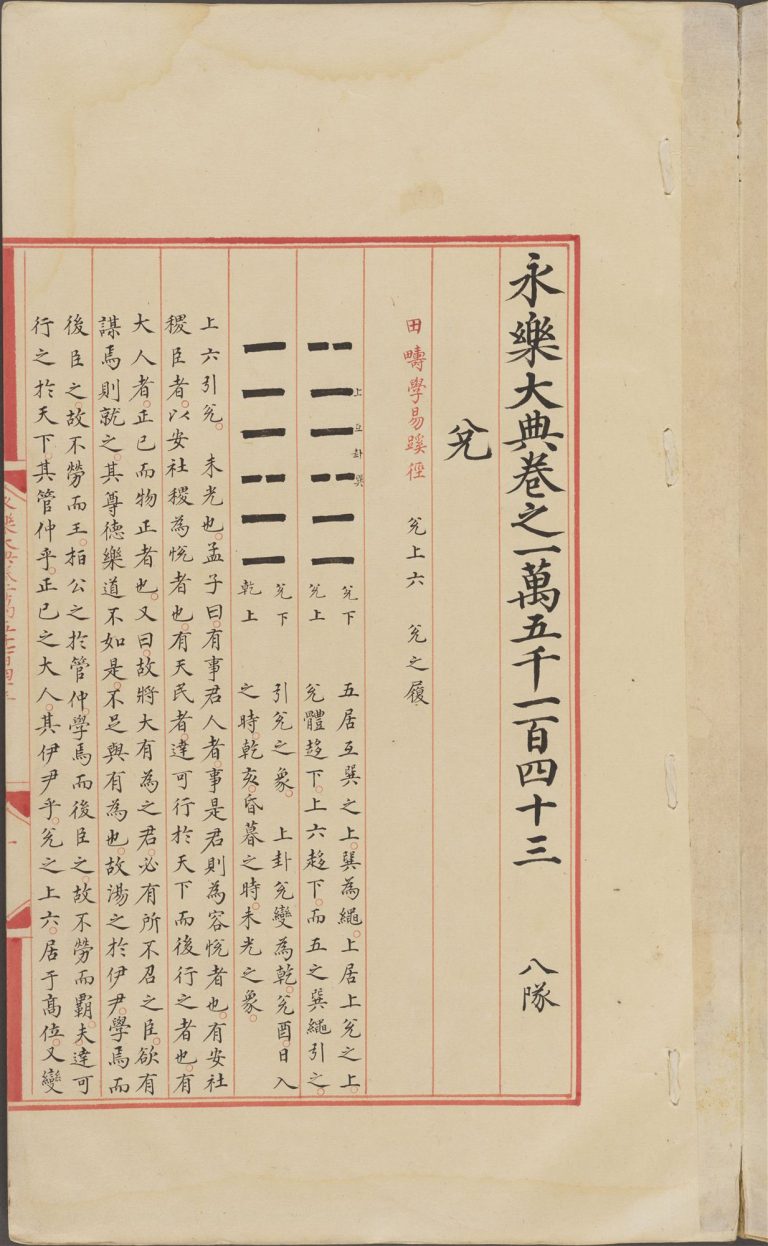 永樂大典卷之一萬五千一百四十三 八隊
兌
田疇學易蹊徑 兌上六 兌之履
上互卦巽
兌下 五居互巽之上。巽為繩。上居上兌之上。
兌上 兌體趍下。上六趍下。而五之巽繩引之。
兌下 引兌之象。 上卦兌變為乾。兌酉。日入
乾上 之時。乾亥。昏暮之時。未光之象。
上六引兌。 未光也。孟子曰。有事君人者。事是君則為容恱者也。有安社
稷臣者。以安社稷為恱者也。有天民者。達可行於天下而後行之者也。有
大人者。正已而物正者也。又曰。故將大有為之君。必有所不召之臣。欲有
謀焉則就之。其尊德樂道不如是。不足與有為也。故湯之於伊尹。學焉而
後臣之。故不勞而王。桓公之於管仲。學焉而後臣之。故不勞而覇。夫達可
行之於天下。其管仲乎。正已之大人。其伊尹乎。兌之上六。居于髙位。又變